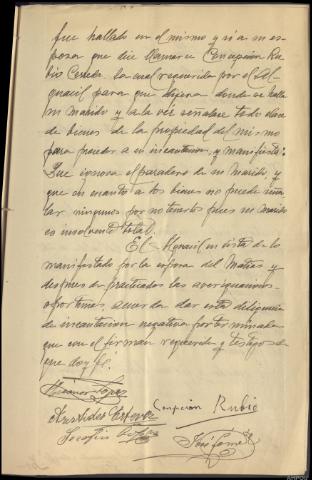 fue hallado en el mismo y si a su es-
posa que dice llamarse Concepción Ru-
bio Cereda la cual requerida por el Al-
guacil para que dijera donde se halla
su marido y a la vez señalase toda clase
de bienes de la propiedad del mismo
para proceder a su incautacion, y manifiesta:
Que ignora el paradero de su marido y
que en cuanto a los bienes no puede seña
lar ningunos por no tenerlos pues su marido
es insolvente total.
El Alguacil en vista de lo
manifestado por la esposa del Matias y
despues de practicadas las averiguaciones
oportunas, acuerda dar esta diligencia
de incautacion negativa por terminada
que con el firman requerida y testigos de
que doy fé.
Lopez
Aristides Esteve
Concepcion Rubio
Serafin
José Gomez